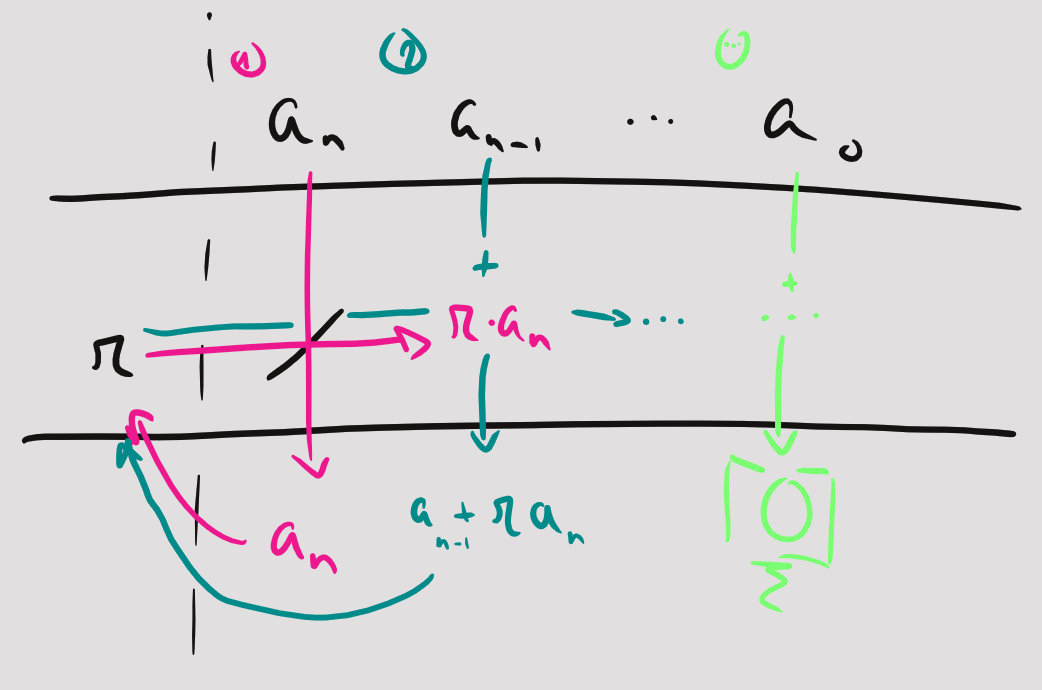 ① ② ...
aₙ aₙ₋₁ ... a₀
+ +
r r·aₙ ... ...
aₙ aₙ₋₁ + r aₙ 0